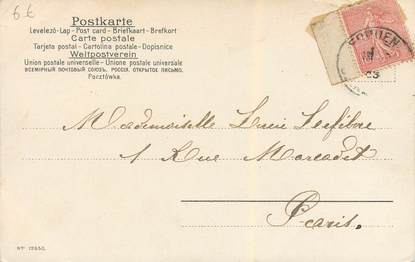 6 €
Postkarte
Levelező-Lap - Post card - Briefkaart - Brefkort
Carte postale
Tarjeta postal - Cartolina postale - Dopisnice
Weltpostverein
Union postale universelle - Unione postale universale
ВСЕМІРНЫЙ ПОЧТОВЫЙ СОЮЗЪ. РОССІЯ. ОТКРЫТОЕ ПИСЬМО.
Pocztówka
03
Mademoiselle Lucie Lefèbvre
1 Rue Marcadet
Paris.